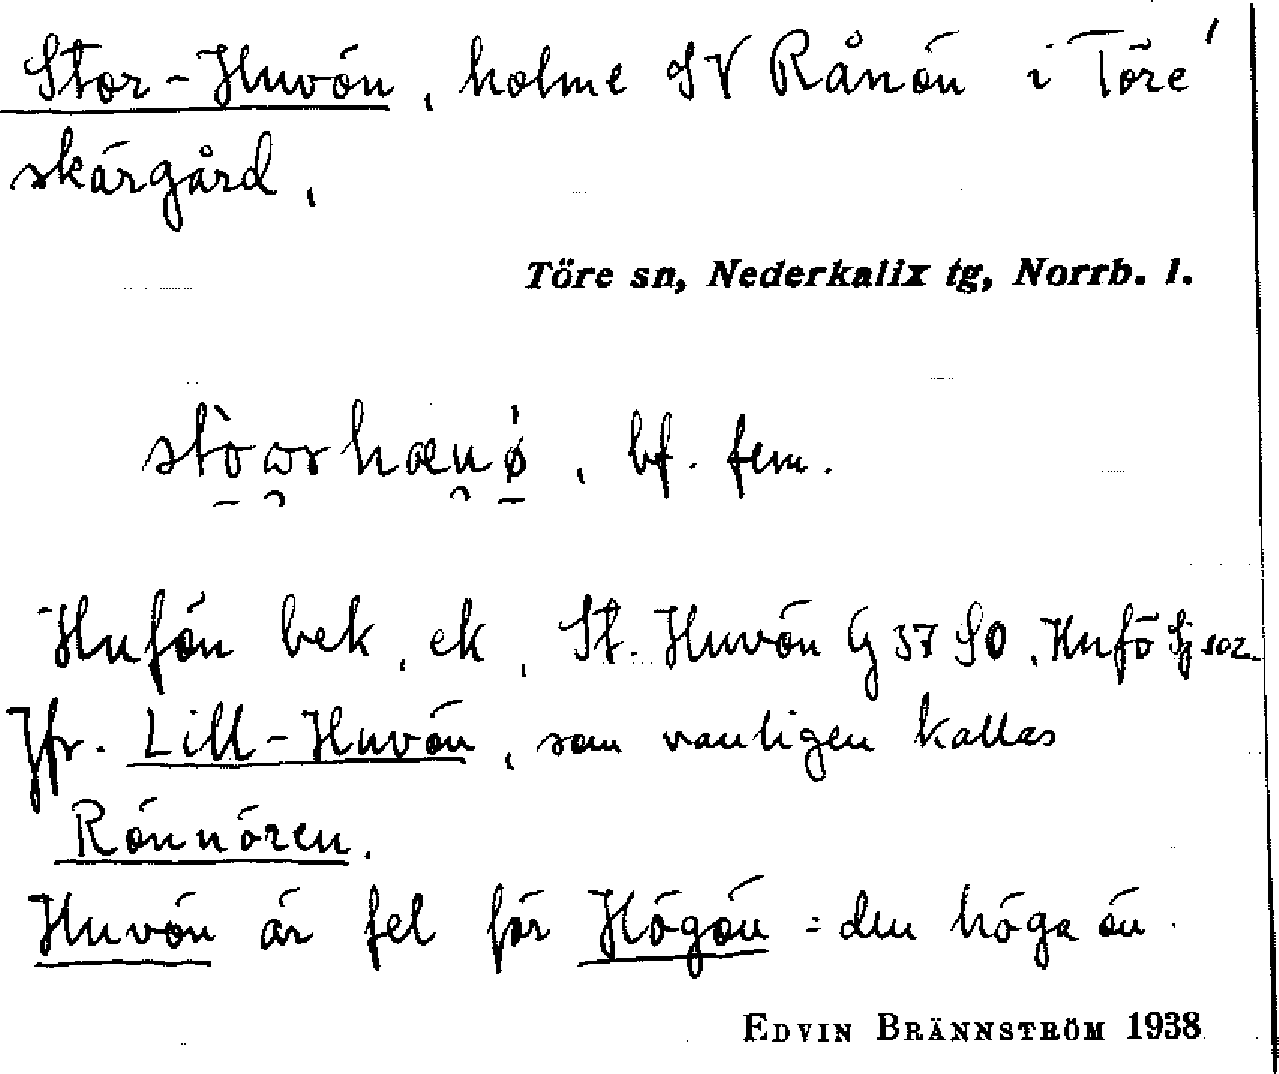 Stor-Huvön, holme SV Rånön i Töre
skärgård.
Töre sn, Nederkalix tg, Norrb. l.
bf. fem.
Hufön bek. ek, St. Huvön G 37 SO, Hufö Sj 102
Jfr. Lill-Huvön, som vanligen kallas
Rönnören.
Huvön är fel för Högön = den höga ön.
EDVIN BRÄNNSTRÖM 1938